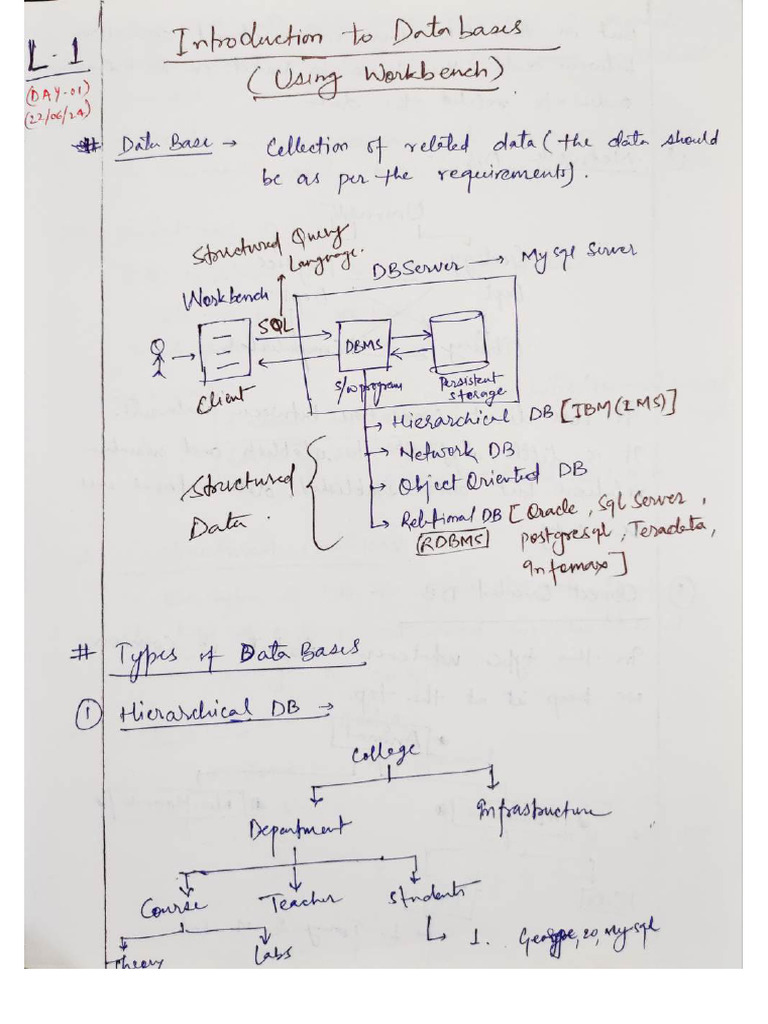 Introduction to Databases
L-1
(Using Workbench)
(DAY-01)
(22/06/24)
# Data Base → Collection of related data (the data should
be as per the requirements).
Structured Query
Language.
DBServer → MySql Server
Workbench
SQL
DBMS
Client
S/w program
Persistent
storage
→ Hierarchical DB [IBM (IMS)]
→ Network DB
→ Object Oriented DB
Structured
Data.
→ Relational DB [Oracle, Sql Server,
(RDBMS) postgresql, Teradata,
Infomax]
# Types of DataBases
① Hierarchical DB →
College
Infrastructure
Department
Course Teacher Students
→ 1. George, 20, Mysql
Theory Labs